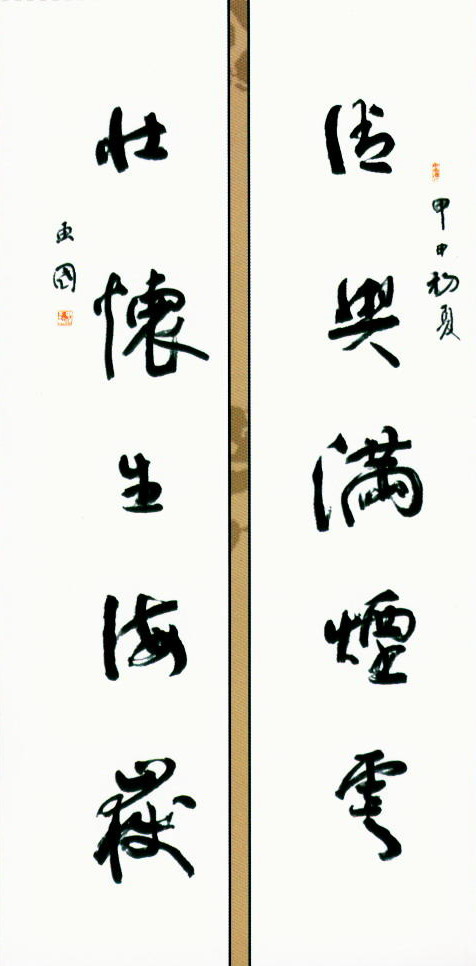 甲申初夏
清興滿煙雲
壯懷生海嶽
國